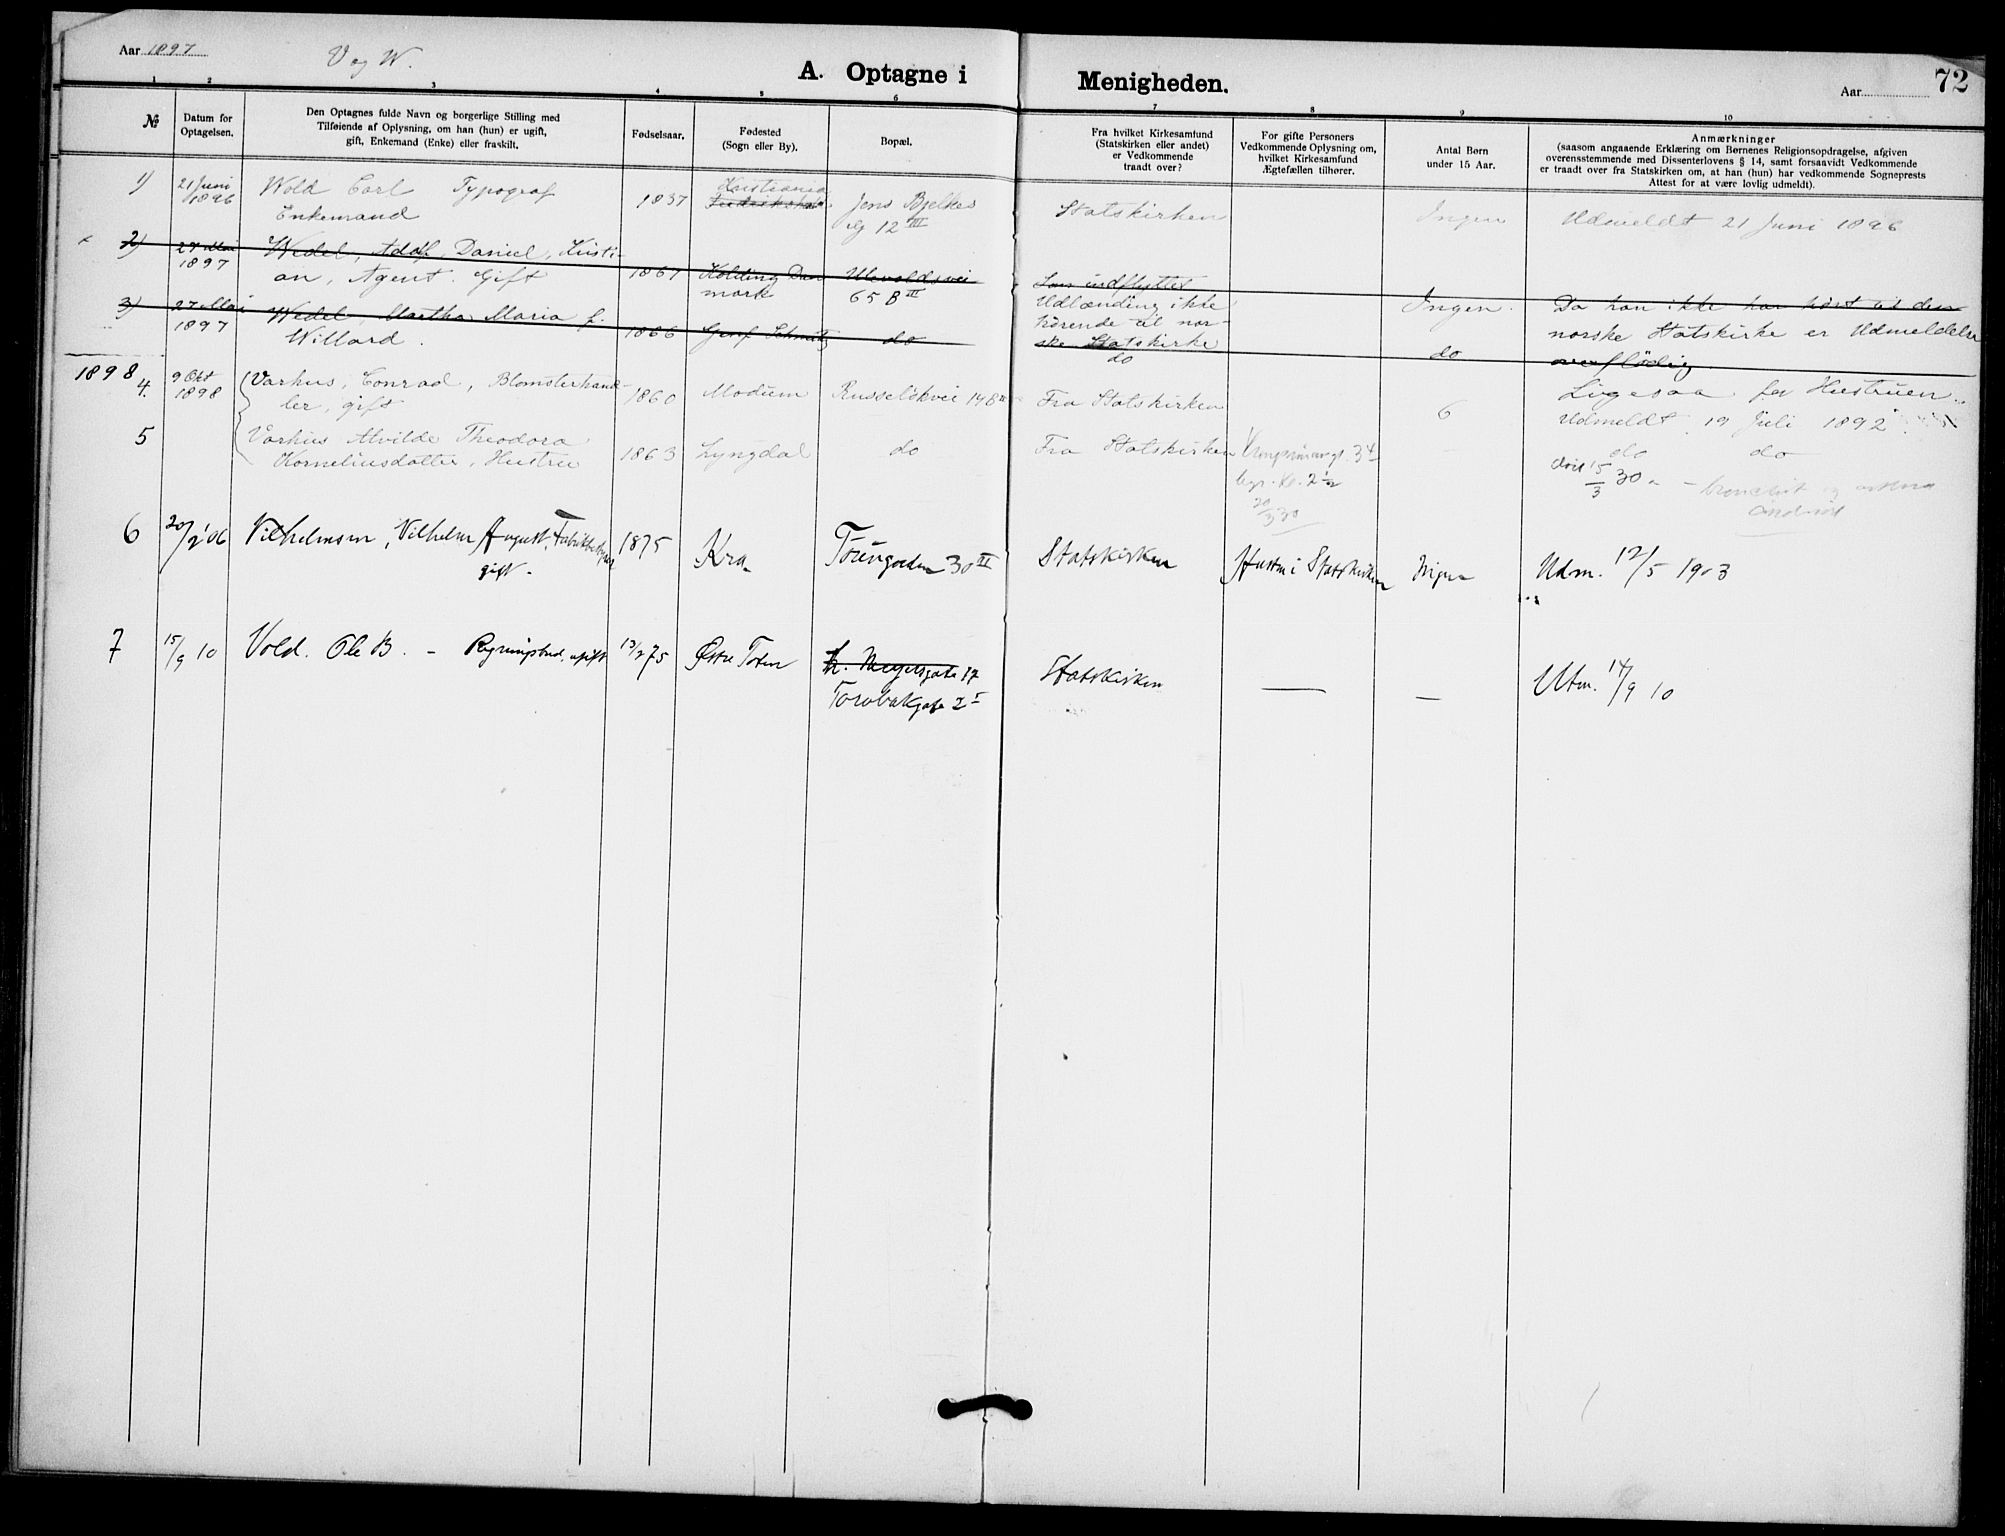 Aar 1897
V og W.
A. Optagne i Menigheden.
Aar
72
1 2 3 4 5 6 7 8 9 10
№
Datum for
Optagelsen.
Den Optagnes fulde Navn og borgerlige Stilling med
Tilføiende af Oplysning, om han (hun) er ugift,
gift, Enkemand (Enke) eller fraskilt.
Fødselsaar.
Fødested
(Sogn eller By).
Bopæl.
Fra hvilket Kirkesamfund
(Statskirken eller andet)
er Vedkommende
traadt over?
For gifte Personers
Vedkommende Oplysning om,
hvilket Kirkesamfund
Ægtefællen tilhører.
Antal Børn
under 15 Aar.
Anmærkninger
(saasom angaaende Erklæring om Børnenes Religionsopdragelse, afgiven
overensstemmende med Dissenterlovens § 14, samt forsaavidt Vedkommende
er traadt over fra Statskirken om, at han (hun) har vedkommende Sogneprests
Attest for at være lovlig udmeldt).
1)
21 Juni
1896
Wold Carl Typograf
Enkemand
1837
Kristiania
Jens Bjelkes
Eg 12 III
Statskirken
Ingen
Udmeldt 21 Juni 1896
2)
27 Mai
1897
Wedel, Adolf, Daniel, Kristi-
an, Agent. Gift
1867
Kolding Dan
mark
Ulevoldsvei
65 B III
Som indflyttet
Udlænding ikke
hörende til nor-
ske Statskirke
Ingen.
Da han ikke har hört til den
norske Statskirke er Udmeldelse
overflödig.
3)
27 Mai
1897
Wedel, Martha Maria f.
Willard.
1866
Genf Schweitz
do
do
do
Ligesaa for Hustruen.
1898
4.
9 Okt
1898
Varhus, Conrad, Blomsterhand-
ler, gift
1860
Modum
Russelökvei 14 B
Fra Statskirken
6
Udmeldt 19 Juli 1892
5
Varhus Alvilde Theodora
Korneliusdatter, Hustru
1863
Lyngdal
do
Fra Statskirken
34
do do
15/3 30
20/3 30
6
Vilhelmsen, Vilhelm August, Fabrikbestyrer
gift.
1875
Kra.
30 III
Statskirken
Hustru i Statskirken
Ingen
Udm. 12/5 1903
7
15/9 10
Vold. Ole B. - ugift
13/2 75
Østre Toten
h. Meyersgate 17
2 I
Statskirken
—
—
Utm. 14/9 10